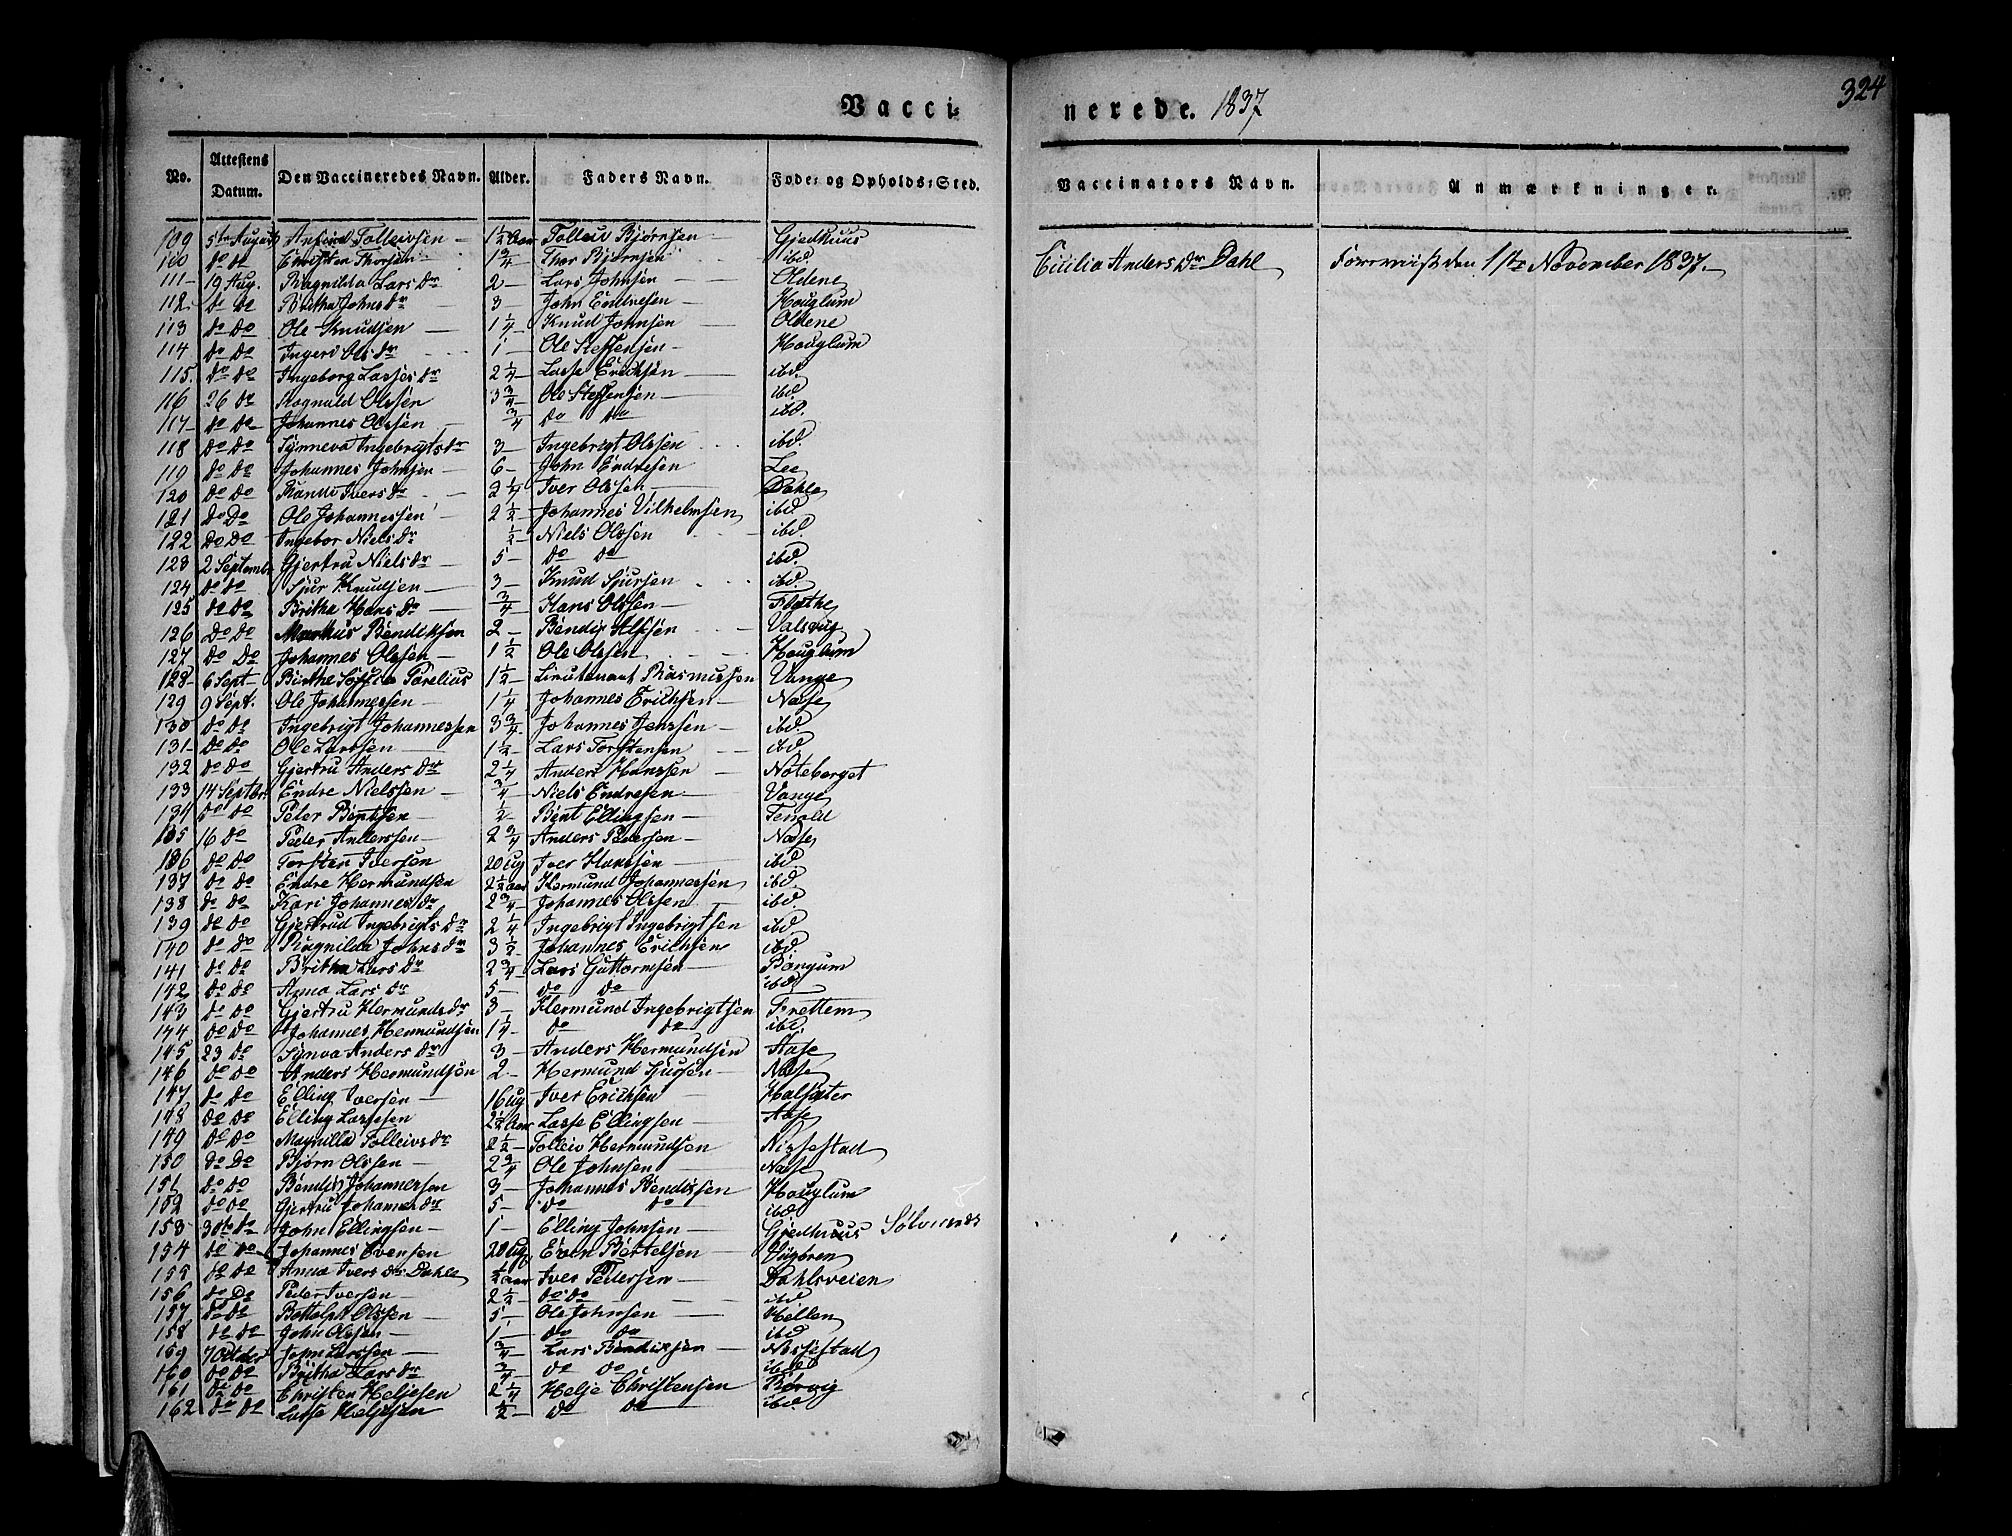 324
Vacci- nerede. 1837
No. Attestens Datum. Den Vaccineredes Navn. Alder. Faders Navn. Føde- og Opholds-Sted. Vaccinators Navn. Anmærkninger.
109 5te August Anfind Tolleivsen 1½ Aar Tolleiv Bjørnsen Gjedhuus
110 do do Christen Thorsen 1¾ Thor Bjørnsen ibd. Cicilia Anders Dr Dahl Foermeist den 1ste November 1837.
111 19 Aug. Ragnilda Lars dr 2 Lars Johnsen Oldene
112 do do Britha Johns dr 3 John Endresen Houglum
113 do do Ole Knudsen 1¼ Knud Johnsen Oldene
114 do do Ingerd Ols dr 1 Ole Steffensen Houglum
115 do do Ingeborg Lasses dr 2¼ Lasse Erichsen ibd.
116 26 do Rognald Olssen 3¾ Ole Steffensen ibd.
117 do do Johannes Olssen ¾ do do ibd.
118 do do Synneva Ingebrigts dr 3 Ingebrigt Olssen ibd.
119 do do Johannes Johnsen 6 John Endresen Lee
120 do do Randi Ivers dr 2¼ Iver Olssen Dahle
121 do do Ole Johannessen 2½ Johannes Vilhelmsen ibd
122 do do Ingebor Niels dr ½ Niels Olssen ibd.
123 2 Septembr Gjertru Niels dr 5 do do ibd.
124 do do Sjur Knudsen 3 Knud Sjursen ibd.
125 do do Britha Hans dr ¾ Hans Olssen Flothe
126 do do Markus Bendiksen 2 Bendix Alfsen Valsvig
127 do do Johannes Olssen 1½ Ole Olssen Houglum
128 6 Sept Birthe Sofia Parelius 1½ Lieutenant Rasmussen Vange
129 9 Sept. Ole Johannessen 1¼ Johannes Erichsen Nase
130 do do Ingebrigt Johannessen 3¾ Johannes Jenssen ibd.
131 do do Ole Larssen 1½ Lars Torstensen ibd
132 do do Gjertru Anders dr 2¼ Anders Hanssen Noteberget
133 14 Septbr. Endre Nielssen ¾ Niels Endresen Vange
134 do do Peter Bentsen ½ Bent Ellingsen Fenold
135 16 do Peder Anderssen 2¾ Anders Pedersen Nase
136 do do Torsten Iversen 20 Ug Iver Hanssen ibd
137 do do Endre Hermundsen 2½ Aar Hermund Johannessen ibd.
138 do do Kari Johannes dr 2¾ Johannes Olssen ibd.
139 do do Gjertrud Ingebrigts dr 2¼ Ingebrigt Ingebrigtsen ibd
140 do do Ragnilda Johns dr 3½ Johannes Erichsen ibd.
141 do do Britha Lars dr 2¾ Lars Guttormsen Bongum
142 do do Anna Lars dr 5 do do ibd
143 do do Gjertru Hermunds dr 3 Hermund Ingebrigtsen Frettem
144 do do Johannes Hermundsen 1¼ do do ibd.
145 23 do Synva Anders dr 3 Anders Hermundsen Aase
146 do do Anders Hermundsen 2 Hermund Sjursen Nase
147 do do Elling Iversen 16 Ug Iver Erichsen Halsæter
148 do do Elling Lassesen 2½ Aar Lasse Ellingsen Aase
149 do do Magnilla Tolleivs dr 2½ Tolleiv Hermundsen Nissestad
150 do do Bjørn Olssen 2¾ Ole Johnsen Nase
151 do do Bendix Johannessen 3 Johannes Bendixsen Houglum
152 do do Gjertru Johannes dr 5 do do ibd
153 30te do John Ellingsen 1 Elling Johnsen Gjedhuus
154 do do Johannes Evensen 20 Ug Even Bertelsen Vigbren
155 do do Anna Ivers dr Dahle ½ Aar Iver Pedersen Dahlsveien
156 do do Peder Iversen 2½ do do ibd
157 do do Bottolph Olssen 5 Ole Johnsen Hellen
158 do do John Olssen 1 do do ibd
159 7 October John Larssen ¾ Lars Bendixsen Nissestad
160 do do Britha Lars dr ¾ do do ibd
161 do do Christen Heljesen 2¼ Helje Christensen Børvig
162 do do Lasse Heljesen ½ do do ibd.